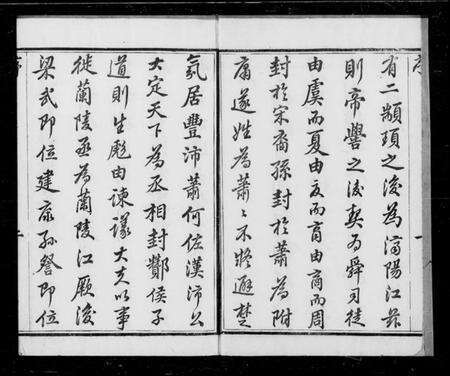 有二顓頊之後為濟陽江氏
則帝嚳之後契為舜司徒
由虞而夏由夏而商由商而周
封於宋裔孫封於蕭為附
庸遂姓為蕭蕭不將避楚
氛居豐沛蕭何佐漢沛公
大定天下為丞相封酇侯子
道則生彪由諫議大夫以事
徙蘭陵丞為蘭陵江厥後
梁武即位建康孫詧即位
序
一